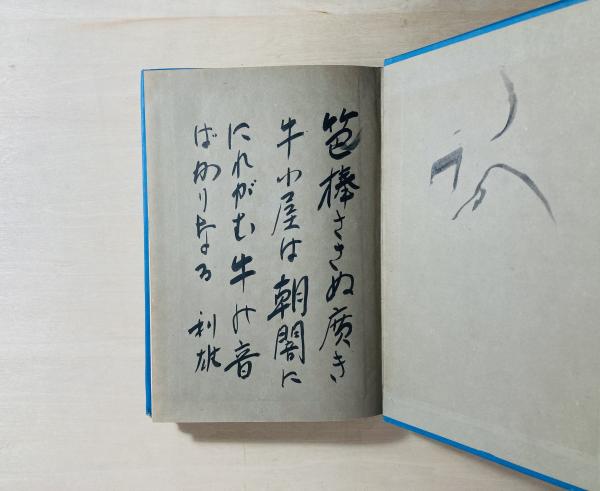 笆棒ささぬ廣き
牛小屋は朝闇に
にれがむ牛の音
ばかりなる 利雄